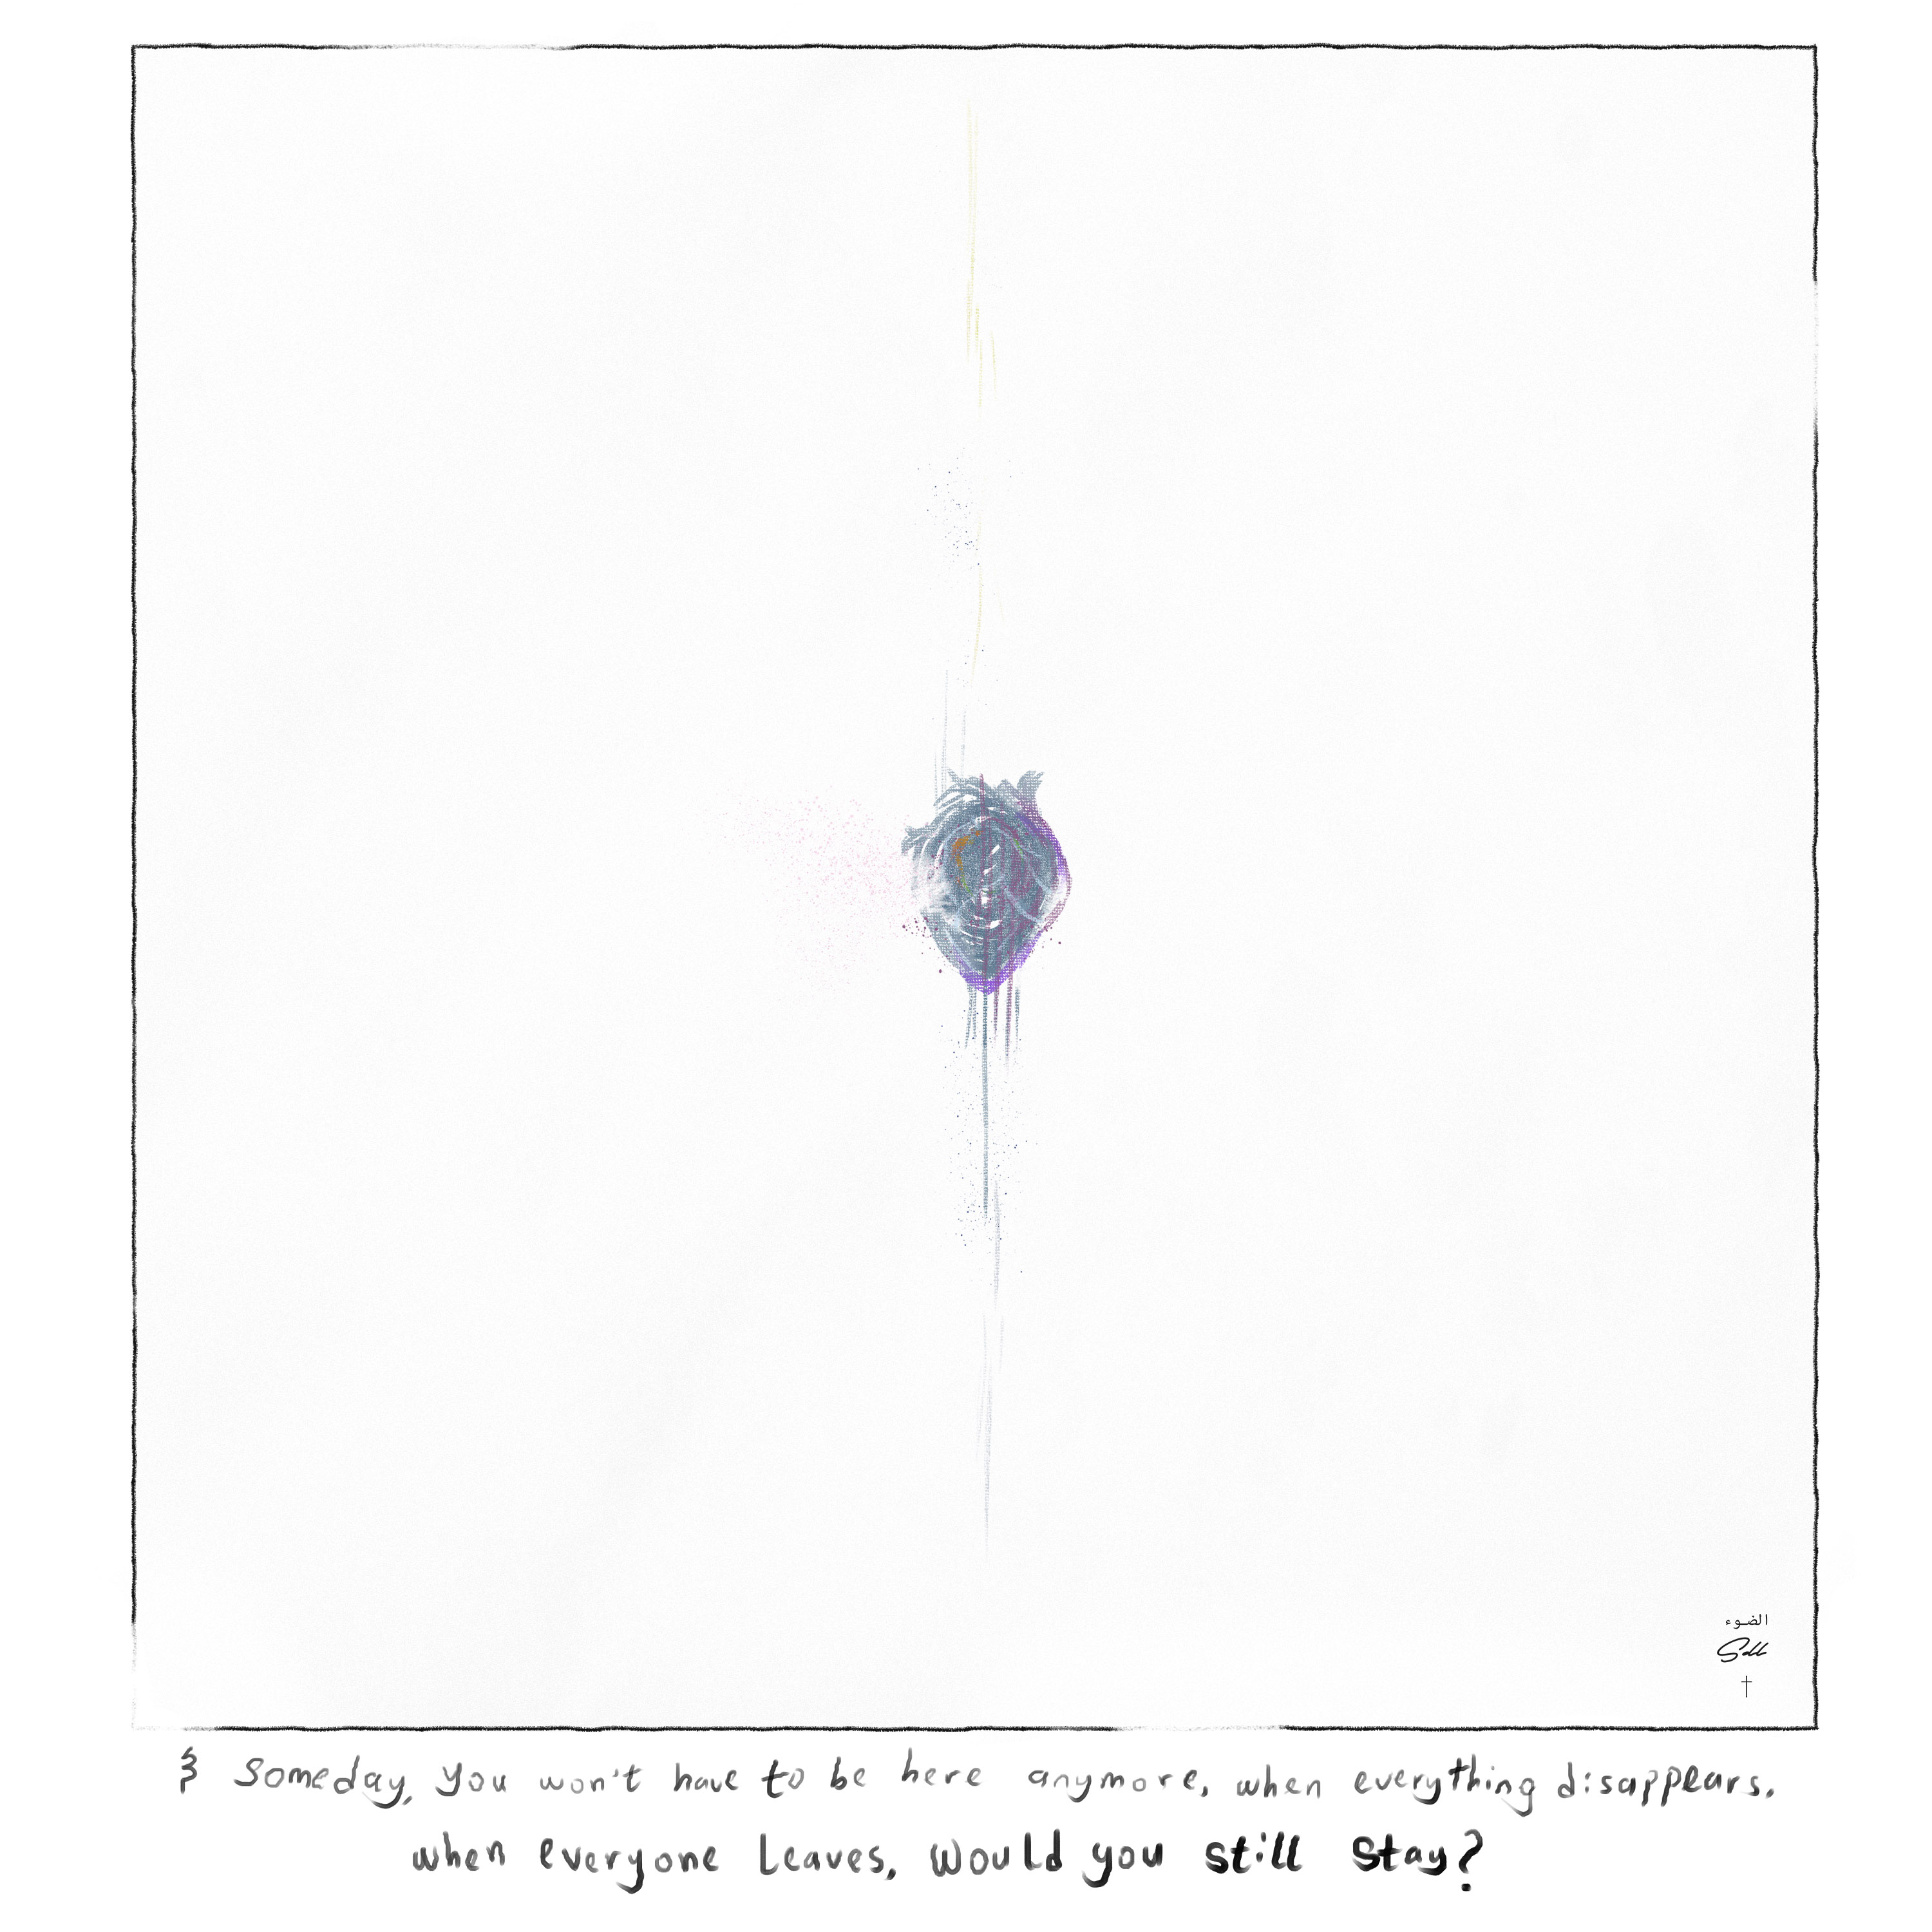 الضوء
& Someday, you won't have to be here anymore, when everything disappears.
when everyone Leaves, Would you still Stay?